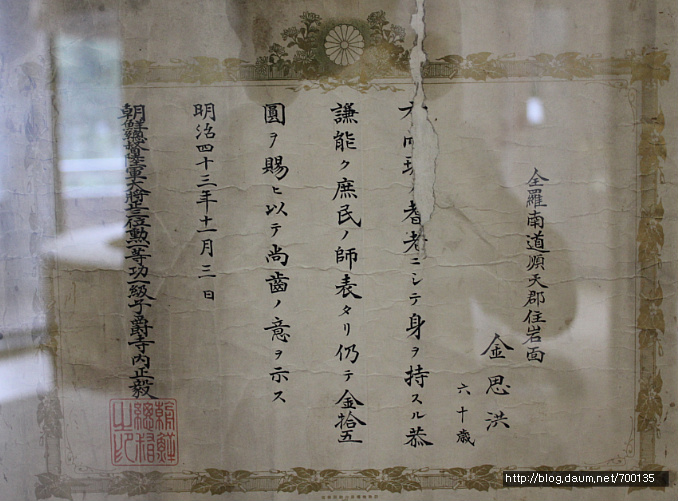 全羅南道順天郡住岩面
金思洪
六十歳
耆老ニシテ身ヲ持スル恭
謙能ク庶民ノ師表タリ仍テ金拾五
圓ヲ賜ヒ以テ尚齒ノ意ヲ示ス
明治四十三年十一月三日
朝鮮總督陸軍大將正三位勲一等功一級子爵寺内正毅
朝鮮
總督
之印
http://blog.daum.net/700135